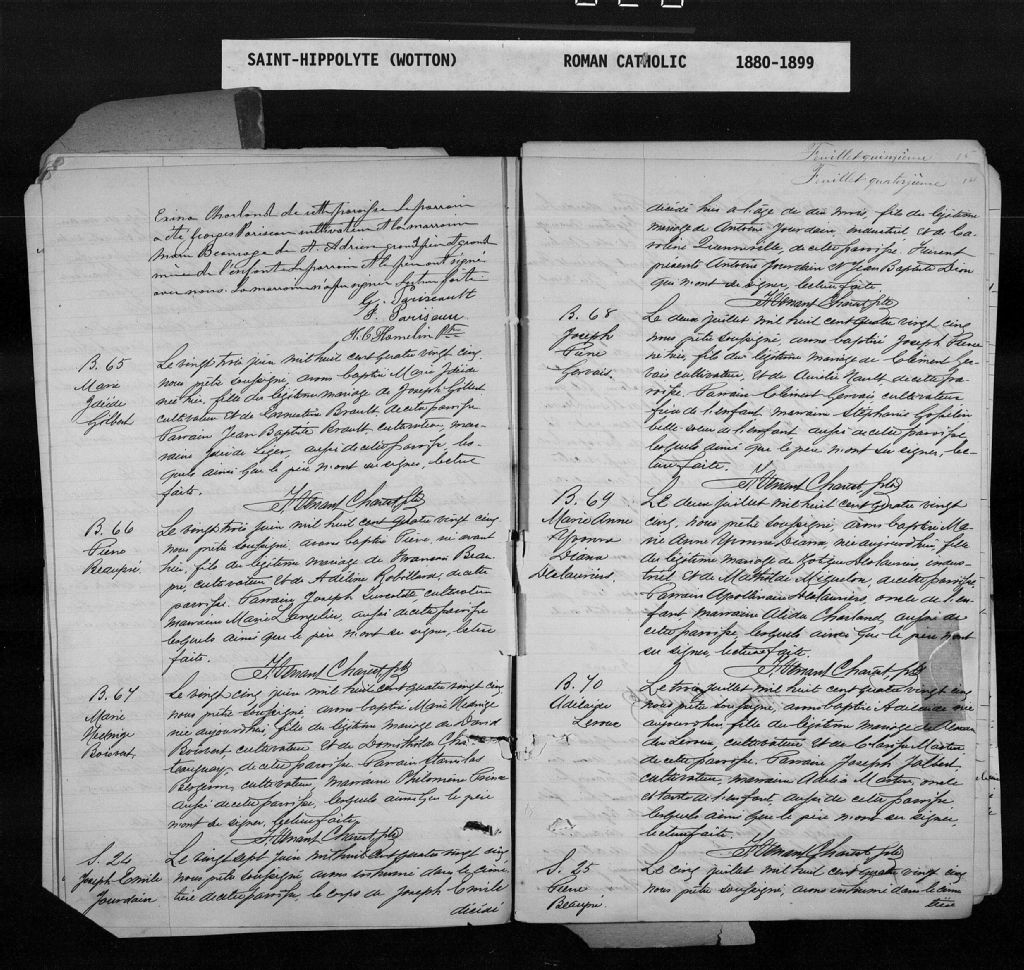 SAINT-HIPPOLYTE (WOTTON) ROMAN CATHOLIC 1880-1899
Charland de cette paroisse Le parrain
a été Georges Pariseau cultivateur et la marraine
Marie Beaurage de St. Adrien grand père et grand
mère de l'enfant. Le parrain et le père ont signé
avec nous. La marraine n'a pu signer. Lecture faite
G. Pariseault
F. Pariseau
H. C. Hamelin Ptre
B. 65
Marie
Idéïde
Gilbert
Le vingt trois juin mil huit cent quatre vingt cinq,
nous prêtre soussigné, avons baptisé Marie Idéïde
née hier, fille du légitime mariage de Joseph Gilbert
cultivateur et de Brault de cette paroisse.
Parrain Jean Baptiste Brault cultivateur, mar-
raine Leger, aussi de cette paroisse, les-
quels ainsi que le père n'ont su signer, lecture
faite.
J. H. Ernest Charest ptre
B. 66
Pierre
Beaupré
Le vingt trois juin mil huit cent quatre vingt cinq
nous prêtre soussigné, avons baptisé Pierre, né avant
hier, fils du légitime mariage de Francois Beau-
pré, cultivateur et de Adéline Robillard, de cette
paroisse. Parrain Joseph cultivateur
marraine Marie Langelier, aussi de cette paroisse
lesquels ainsi que le père n'ont su signer, lecture
faite.
J. H. Ernest Charest ptre
B. 67
Marie
Hedwige
Boisvert
Le vingt cinq juin mil huit cent quatre vingt cinq
nous prêtre soussigné avons baptisé Marie Hedwige
née aujourd'hui, fille du légitime mariage de David
Boisvert cultivateur et de Domithilde Cha-
teauguay, de cette paroisse. Parrain Stanislas
cultivateur, marraine Philomène Prince
aussi de cette paroisse, lesquels ainsi que le père
n'ont su signer, lecture faite,
J. H. Ernest Charest ptre
S. 24
Joseph Emile
Jourdain
Le vingt sept juin mil huit cent quatre vingt cinq
nous prêtre soussigné avons inhumé dans le cime-
tière de cette paroisse, le corps de Joseph Emile
décédé
Feuillet quinzième 15
Feuillet quatorzième 14
décédé hier à l'âge de dix mois, fils du légitime
mariage de Antoine Jourdain, industriel et de Ca-
roline Quenneville de cette paroisse. Furent
présents Antoine Jourdain et Jean Baptiste Dion
qui n'ont su signer, lecture faite.
J. H. Ernest Charest ptre
B. 68
Joseph
Pierre
Gervais.
Le deux juillet mil huit cent quatre vingt cinq
nous prêtre soussigné, avons baptisé Joseph Pierre
né hier, fils du légitime mariage de Clément Ger-
vais cultivateur, et de Amélie Nault de cette pa-
roisse. Parrain Clément Gervais, cultivateur
frère de l'enfant, marraine Stéphanie Gosselin
belle soeur de l'enfant aussi de cette paroisse
lesquels ainsi que le père n'ont su signer, lec-
ture faite.
J. H. Ernest Charest ptre
B. 69
Marie Anne
Yvonne
Diana
Deslauriers.
Le deux juillet mil huit cent quatre vingt
cinq, nous prêtre soussigné, avons baptisé Ma-
rie Anne Yvonne Diana, née aujourd'hui, fille
du légitime mariage de Deslauriers, indus-
triel et de Mathilde Miquelon, de cette paroisse
Parrain Apollinaire Deslauriers, oncle de l'en-
fant, marraine Alida Charland, aussi de
cette paroisse, lesquels ainsi que le père n'ont
su signer, lecture faite.
J. H. Ernest Charest ptre
B. 70
Adelaide
Leroux
Le trois juillet mil huit cent quatre vingt cinq
nous prêtre soussigné, avons baptisé Adelaide née
aujourd'hui fille du légitime mariage de
Leroux, cultivateur et de Martin
de cette paroisse. Parrain Joseph Jalbert,
cultivateur, marraine Adélia Martin, oncle
et tante de l'enfant, aussi de cette paroisse,
lesquels ainsi que le père n'ont su signer,
lecture faite.
J. H. Ernest Charest ptre
S. 25
Pierre
Beaupré.
Le cinq juillet mil huit cent quatre vingt cinq
nous prêtre soussigné, avons inhumé dans le cime
tière